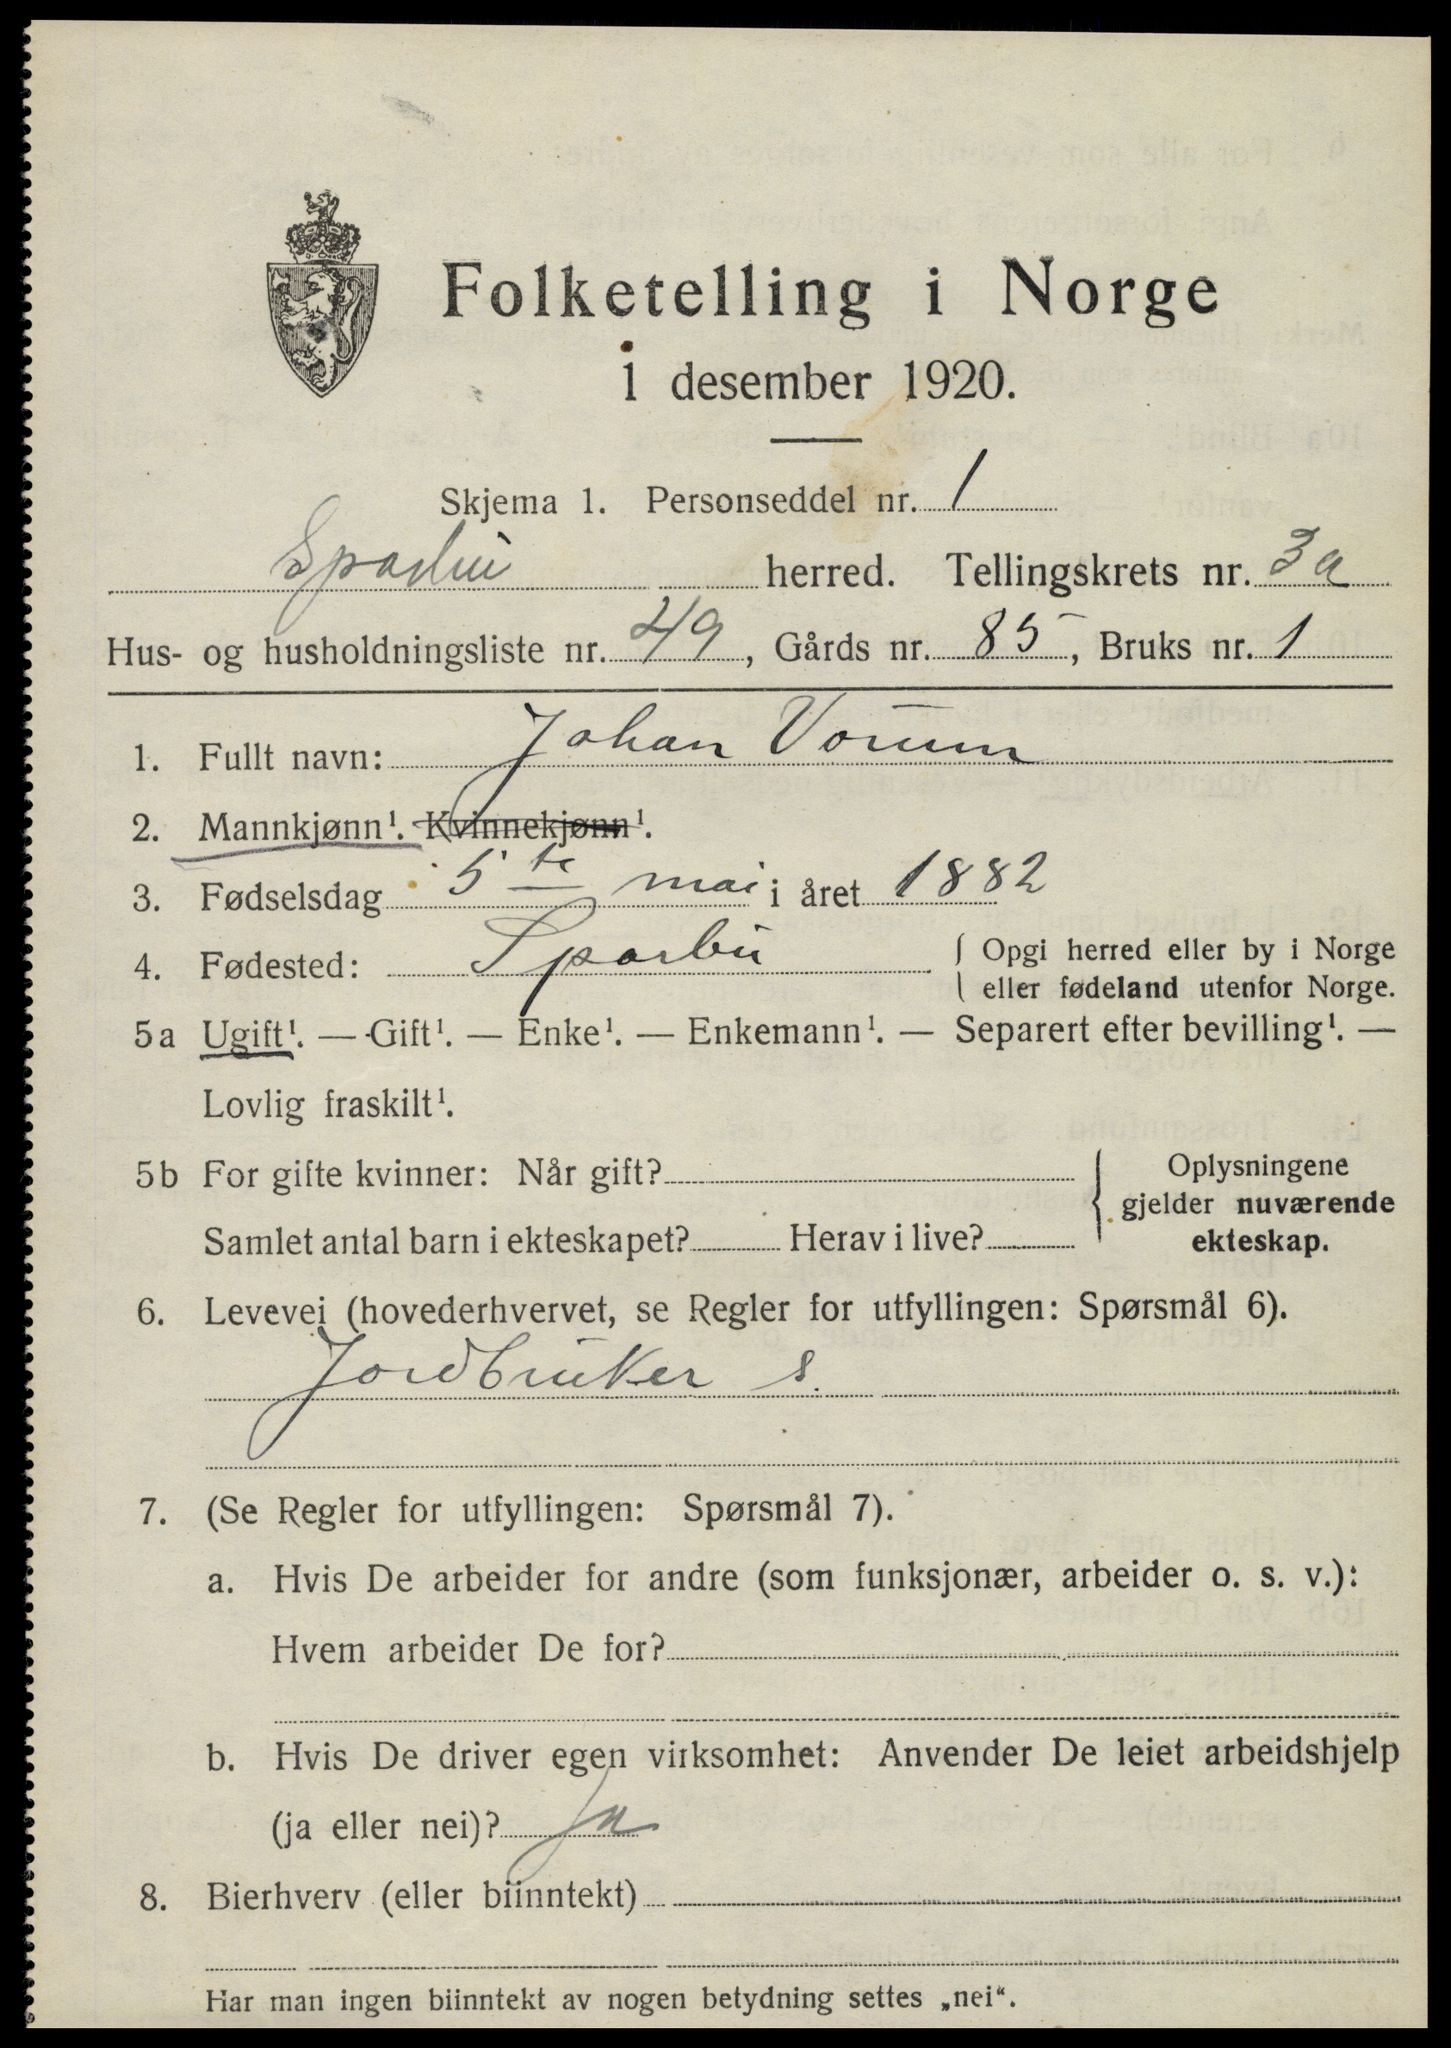 Folketelling i Norge
1 desember 1920.
Skjema 1. Personseddel nr. 1
Sparbu herred. Tellingskrets nr. 3a
Hus- og husholdningsliste nr. 49, Gårds nr. 85, Bruks nr. 1
1. Fullt navn: Johan Vorum
2. Mannkjønn¹. Kvinnekjønn¹.
3. Fødselsdag 5te mai i året 1882
4. Fødested: Sparbu { Opgi herred eller by i Norge
eller fødeland utenfor Norge.
5a Ugift¹. — Gift¹. — Enke¹. — Enkemann¹. — Separert efter bevilling¹. —
Lovlig fraskilt¹.
5b For gifte kvinner: Når gift? { Oplysningene
gjelder nuværende
Samlet antal barn i ekteskapet? Herav i live? ekteskap.
6. Levevei (hovederhvervet, se Regler for utfyllingen: Spørsmål 6).
Jordbruker s.
7. (Se Regler for utfyllingen: Spørsmål 7).
a. Hvis De arbeider for andre (som funksjonær, arbeider o. s. v.):
Hvem arbeider De for?
b. Hvis De driver egen virksomhet: Anvender De leiet arbeidshjelp
(ja eller nei)? Ja
8. Bierhverv (eller biinntekt)
Har man ingen biinntekt av nogen betydning settes „nei“.